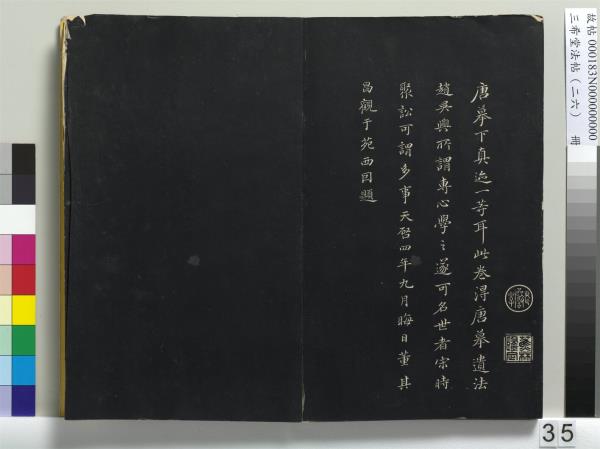 唐摹下真迹一等耳此卷得唐摹遺法
趙吳興所謂專心學之遂可名世者宗時
聚訟可謂多事天啓四年九月晦日董其
昌觀于苑西因題
故帖 000183N000000000
三希堂法帖（二六） 冊
35